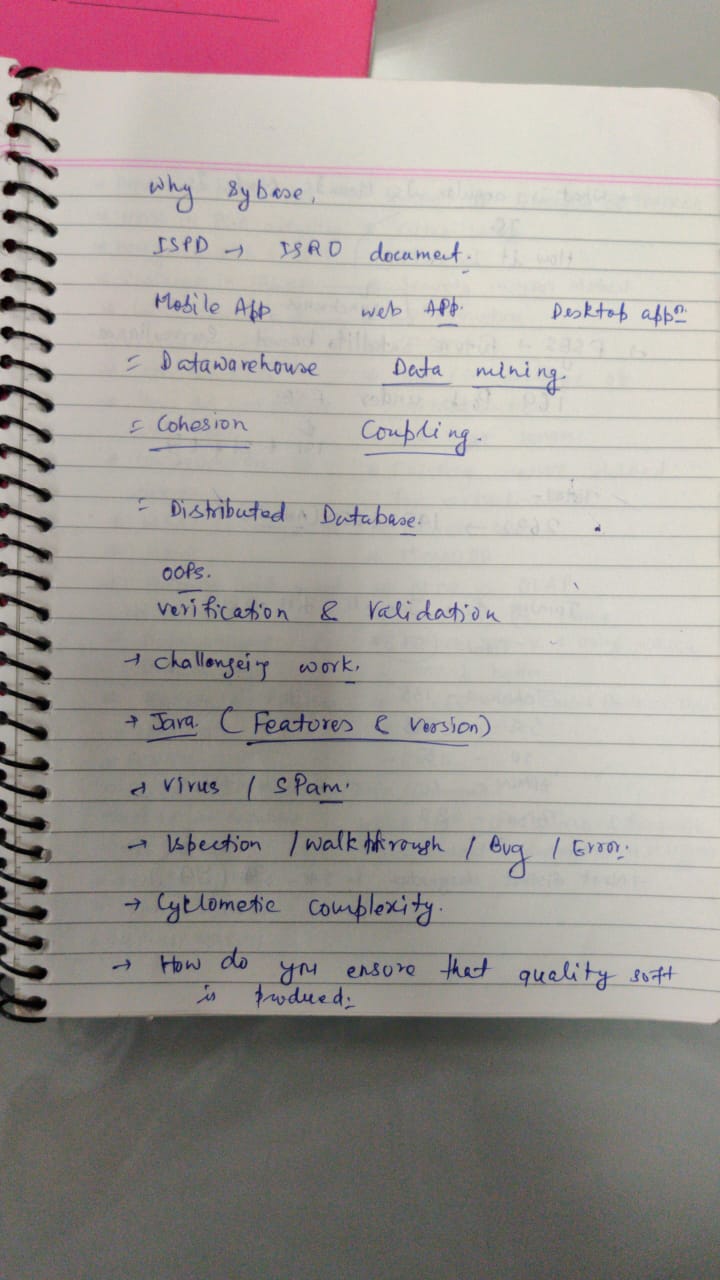 Why Sybase,
ISPD → ISRO document.
Mobile App web APP. Desktop app.
= Datawarehouse Data mining.
= Cohesion Coupling.
= Distributed Database.
OOPs.
verification & Validation
→ Challengeing work.
→ Java (Features & Version)
→ Virus / SPam.
→ Ispection / walkthrough / Bug / Error.
→ Cyklometic complexity.
→ How do you ensure that quality soft
is produed.